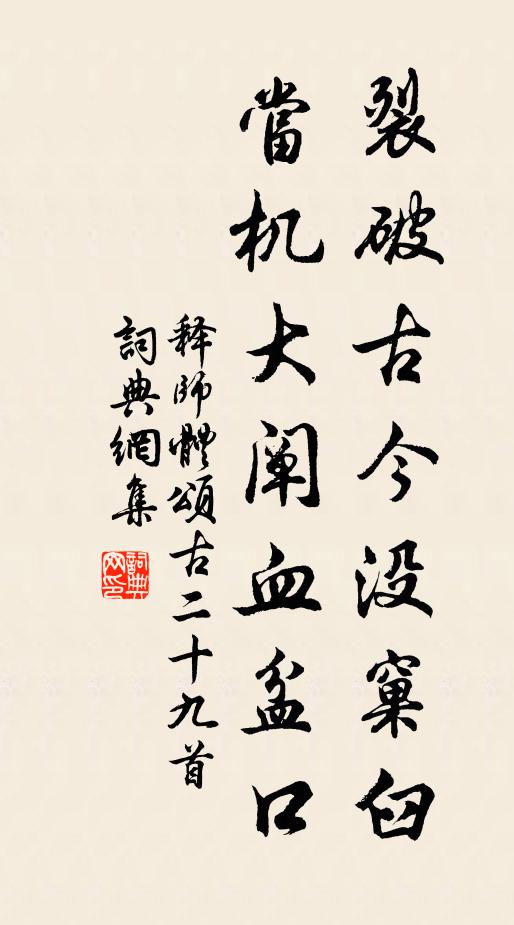 裂破古今没窠臼
當机大闡血盆口
释師體頌古二十九首
詞典網集
詞典网印